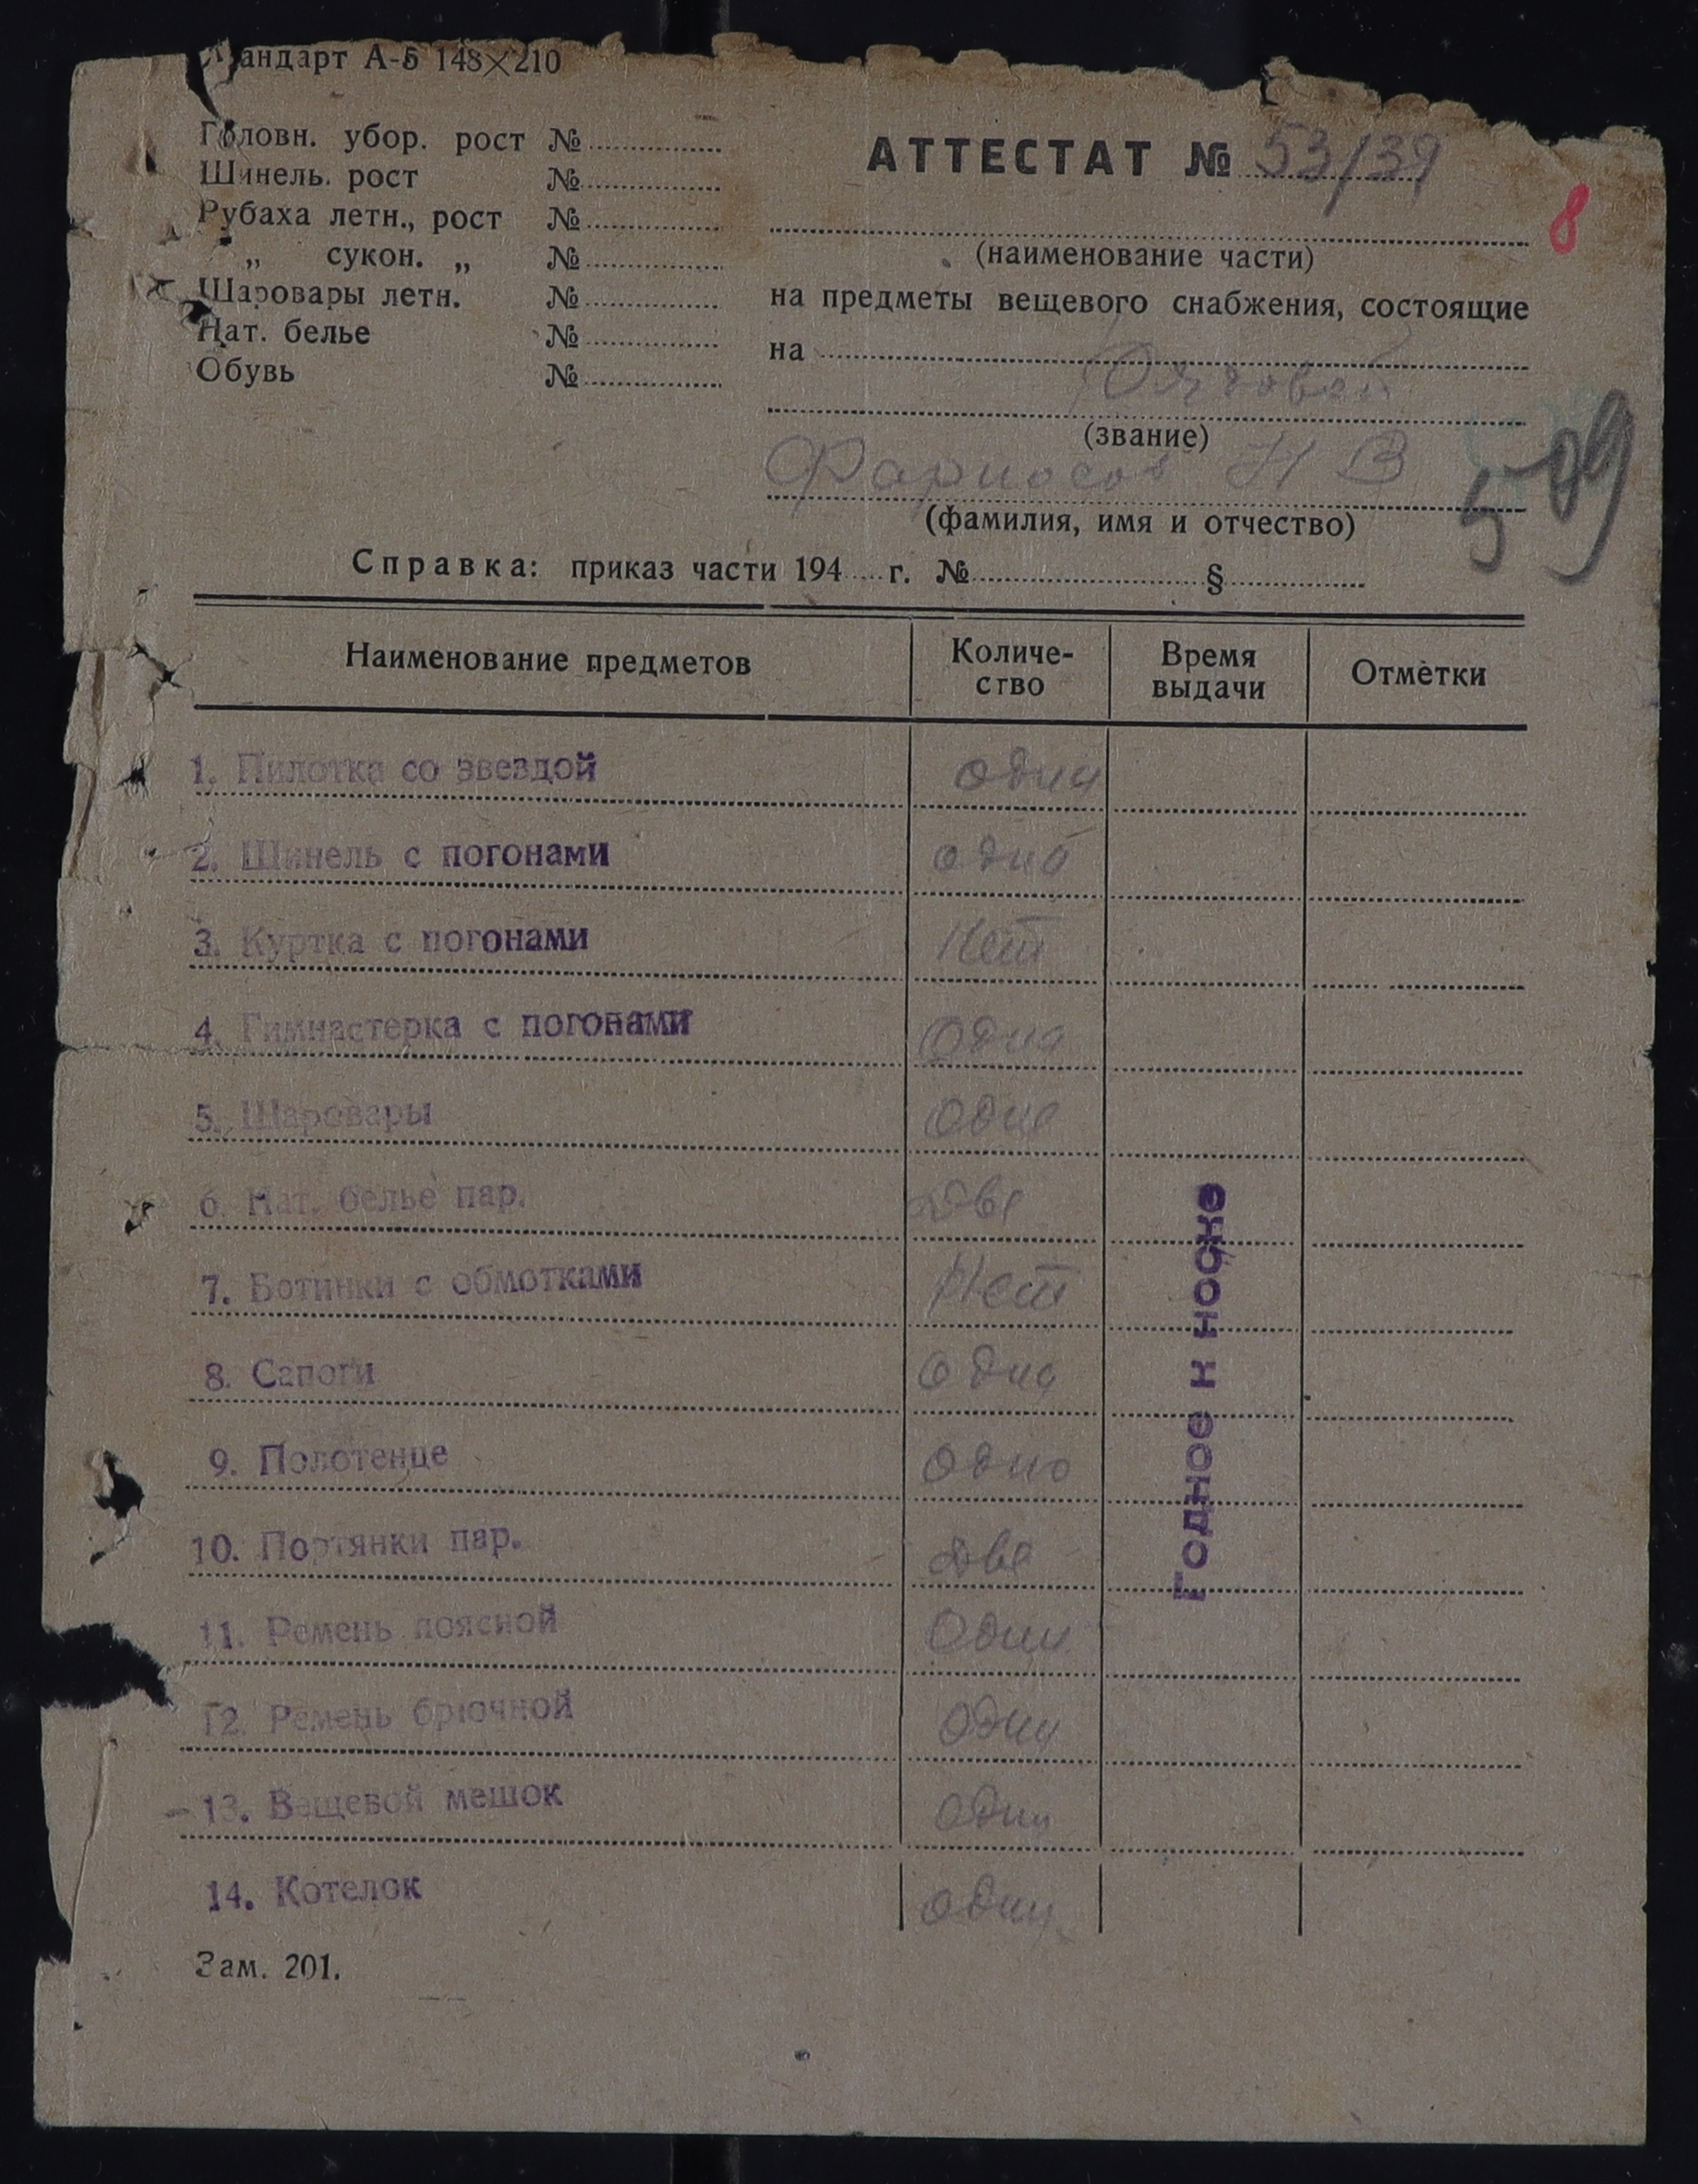 Стандарт А-5 148×210
Головн. убор. рост №
Шинель. рост №
Рубаха летн., рост №
„ сукон. „ №
Шаровары летн. №
Нат. белье №
Обувь №
АТТЕСТАТ № 53/39
8
(наименование части)
на предметы вещевого снабжения, состоящие
на
Рядовой
(звание)
Фарносов Н В
509
(фамилия, имя и отчество)
Справка: приказ части 194 г. № §
Наименование предметов Количе-ство Время выдачи Отметки
1. Пилотка со звездой одна
2. Шинель с погонами одна
3. Куртка с погонами Нет
4. Гимнастерка с погонами Одна
5. Шаровары Одне
6. Нат. белье пар. Две
7. Ботинки с обмотками Нет
8. Сапоги Одна
9. Полотенце Одно
10. Портянки пар. Две
11. Ремень поясной Один
12. Ремень брючной Один
13. Вещевой мешок Один
14. Котелок Один
Годное к носке
Зам. 201.